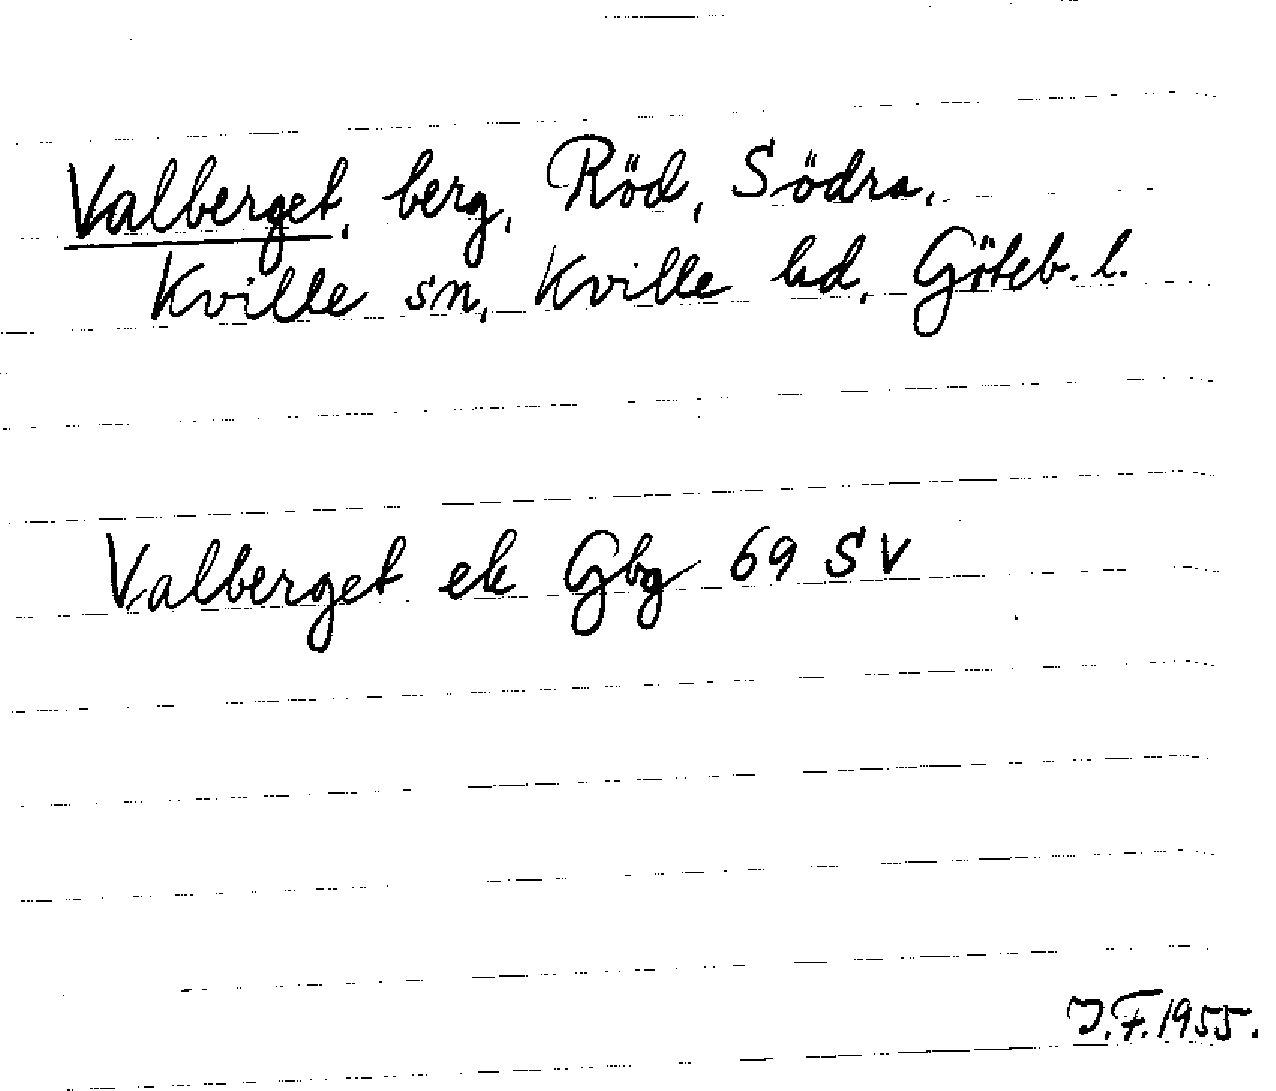 Valberget, berg, Röd, Södra,
Kville sn, Kville hd, Göteb. l.
Valberget ek Gbg 69 SV
J.F. 1955.